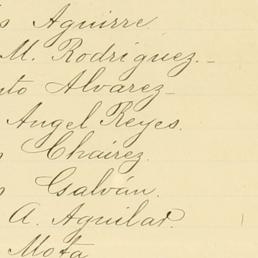 s Aguirre.
M. Rodríguez.
to Alvarez
Angel Reyes.
Cháirez.
Galván.
A. Aguilar.
Mota